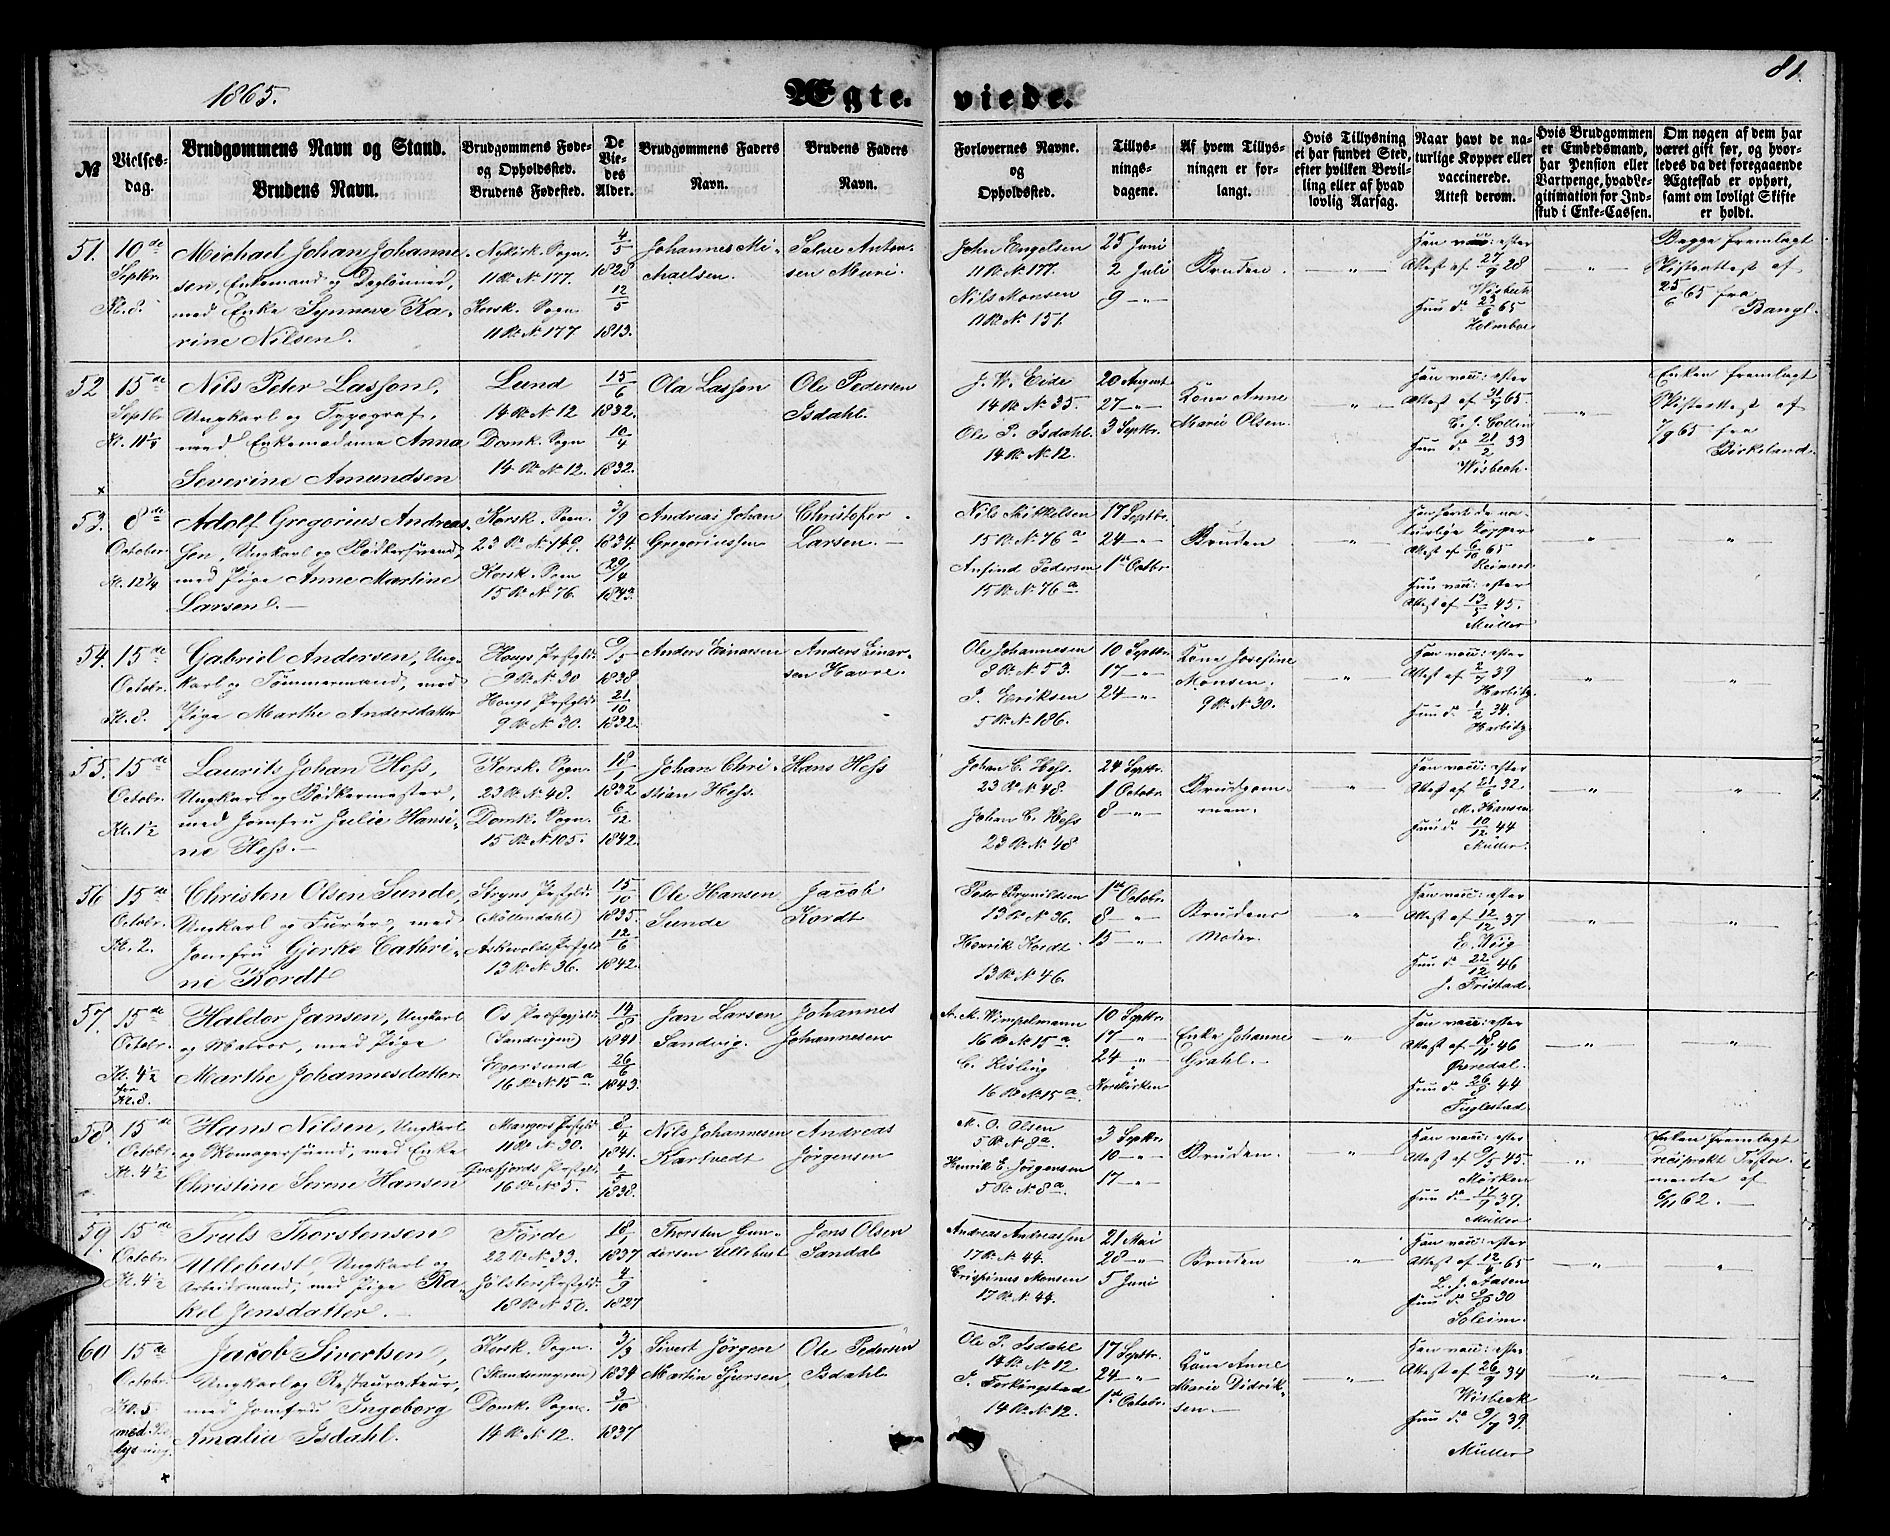 1865.
Ægte-
viede.
81.
№
Vielses-
dag.
Brudgommens Navn og Stand.
Brudens Navn.
Brudgommens Føde-
og Opholdssted.
Brudens Fødested.
De
Vie-
des
Alder.
Brudgommens Faders
Navn.
Brudens Faders
Navn.
Forlovernes Navne.
og
Opholdssted.
Tillys-
nings-
dagene.
Af hvem Tillys-
ningen er for-
langt.
Hvis Tillysning
ei har fundet Sted,
efter hvilken Bevil-
ling eller af hvad
lovlig Aarsag.
Naar havt de na-
turlige Kopper eller
vaccinerede.
Attest derom.
Hvis Brudgommen
er Embedsmand,
har Pension eller
Vartpenge, hvad Le-
gitimation for Ind-
skud i Enke-Cassen.
Om nogen af dem har
været gift før, og hvor-
ledes da det foregaaende
Ægteskab er ophørt,
samt om lovligt Skifte
er holdt.
51. 10de
Septbr.
Kl. 8.
Michael Johan Johanne-
sen, Enkemand og Dagleier,
med Enke Synneve Ka-
rine Nilsen.
Nykirk. Sogn.
11 R. N. 177.
Korsk. Sogn
11 R. N. 177
4/5
1828
12/5
1813.
Johannes Mi-
chaelsen.
Salve Anton-
sen Muri.
John Engelsen
11 R. N. 177.
Nils Monsen
11 R. N. 151.
25 Juni
2 Juli
9 —"—
Bruden.
—"—
Han vacc: efter
Attest af 27/9 28
Wisbech
Hun do 23/6 65
Holmboe
—"—
Begge fremlagt
Skifteattest af
25/6 65 fra
Bangl.
52 15de
Septbr.
Nils Peter Lasson,
Ungkarl og Typograf,
med Enkemadame Anna
Severine Amundsen
Lund
14 R. N. 12
Domk. Sogn
14 R. N. 12.
15/6
1832.
10/4
1832.
Ola Lasson
Ole Pedersen
Isdahl.
J. W. Eide
14 R. N. 35.
Ole P. Isdahl.
14 R. N. 12.
20 August
27 —"—
3 Septbr.
Kone Anne
Marie Olsen.
—"—
Han vacc: efter
C. J. Collin
Hun do 21/2 33
Wisbech.
—"—
Enken fremlagt
Skifteattest af
7/9 65 fra
Birkeland.
53. 8de
October
Kl. 12¼
Adolf Gregorius Andreas-
sen, Ungkarl og Bødkersvend,
med Pige Anne Martine
Larsen. —
Korsk. Sogn.
23 R. N. 149.
Korsk. Sogn
15 R. N. 76.
3/9
1834.
29/4
1843.
Andreas Johan
Gregoriussen
Christofer
Larsen. —
Nils Mikkelsen
15 R. N. 76 a
Anfind Pedersen
15 R. N. 76 a
17 Septbr.
24 —"—
1ste Octbr.
Bruden
"
Han havt de na-
turlige Kopper
Attest af 6/10 65
Reimert.
Hun vacc: efter
Attest af 13/5 45.
Müller
"
"
54. 15de
Octobr.
Kl. 8.
Gabriel Andersen, Ung-
karl og Tømmermand, med
Pige Marthe Andersdatter
Hougs Prstgld.
9 R. N. 30
Hougs Prstgld.
9 R. N. 30.
9/5
1838
21/10
1832.
Anders Einarsen
Anders Einar-
sen Havre.
Ole Johannesen
8 R. N. 53.
P. Eriksen
5 R. N. 186.
10 Septbr.
17 —"—
24 —"—
Kone Josefine
Monsen.
9 R. N. 30.
—"—
Han vacc: efter
Attest af 2/7 39
Harbitz
Hun do 1/2 34.
Harbitz.
"
"
55. 15de
Octobr.
Kl. 1½
Laurits Johan Hess,
Ungkarl og Bødkermester,
med Jomfru Julie Hansi-
ne Hess. —
Korsk. Sogn.
23 R. N. 48.
Domk. Sogn.
15 R. N. 105.
18/1
1832
6/12
1842.
Johan Chri-
stian Hess.
Hans Hess
Johan C. Hess.
23 R. N. 48
Johan C. Hess
23 R. N. 48
24 Septbr.
1 Octobr.
8 —"—
Brudgom-
men.
—"—
Han vacc: efter
Attest af 21/6 32.
M. Hansen
Hun do 10/12 44
Müller.
"
"
56 15de
Octobr.
Kl. 2.
Christen Olsen Sunde,
Ungkarl og Furér, med
Jomfru Gjerke Cathri-
ne Kordt
Stryns Prstgld.
(Møllendahl)
Askevolds Prstgld.
13 R. N. 36.
15/10
1835.
12/6
1842.
Ole Hansen
Sunde
Jacob
Kordt
Peter Brynildsen
13 R. N. 36.
Henrik Kordt
13 R. N. 46.
1ste Octobr.
8 —"—
15 —"—
Brudens
Moder.
"
Han vacc: efter
Attest af 12/12 37
Hun do 22/12 46
J. Fristad.
"
"
57. 15de
Octobr.
Kl. 4½
før
Kl. 8.
Haldor Jansen, Ungkarl
og Matros, med Pige
Marthe Johannesdatter
Os Præstegjeld
(Sandvigen)
Egersund
16 R. N. 15 a
14/8
1841
26/6
1843.
Jan Larsen
Sandvig.
Johannes
Johannesen
A. M. Wimpelmann
16 R. N. 15 a.
C. Kisling
16 R. N. 15 a.
10 Septbr.
17 —"—
24 —"—
i
Korskirken
Enke Johanne
Grahl. —
—"—
Han vacc: efter
Attest af 18/11 46
Øvredal.
Hun do 26/8 44
Fuglestad
—"—
"
58. 15de
Octobr.
Kl. 4½
Hans Nilsen, Ungkarl
og Skomagersvend, med Enke
Christine Serene Hansen
Mangers Prstgld.
11 R. N. 30.
16 R. N. 5.
8/4
1841.
1/5
1838.
Nils Johannesen
Kartvedt
Andreas
Jørgensen
M. O. Olsen
5 R. N. 8 a.
Henrik E. Jørgensen
5 R. N. 8 a.
3 Septbr.
10 —"—
17 —"—
Bruden.
—"—
Han vacc: efter
Attest af 9/5 45.
Mørken
Hun do 17/9 39.
Müller
"
Enken fremlagt
reciprokt Testa-
mente af
6/11 62. —
59. 15de
Octobr.
Kl. 4½
Truls Thorstensen
Ullebust, Ungkarl og
Arbeidsmand, med Pige Ra-
kel Jensdatter. —
Førde
22 R. N. 33.
Jølsters Prstgld.
18 R. N. 50.
18/1
1837
4/9
1827
Thorsten Gun-
dersen Ullebust
Jens Olsen
Sandal
Andreas Andreassen
17 R. N. 44.
Crispinus Monsen
17 R. N. 44.
21 Mai
28 —"—
5 Juni
Bruden
—"—
Han vacc: efter
Attest af 12/4 65
L. J. Aasen
Hun do 9/8 30
Soleim.
—"—
"
60 15de
Octobr.
Kl. 5.
med Be-
lysning.
Jacob Sivertsen,
Ungkarl og Restaurateur,
med Jomfru Ingeborg
Amalia Isdahl.
Korsk. Sogn.
(Skandsemyren)
Domk. Sogn.
14 R. N. 12.
3/3
1834
3/10
1837
Sivert Jørgen
Martin Sjursen
Ole Pedersen
Isdahl
Ole P. Isdahl
14 R. N. 12
J. Forkingstad
14 R. N. 12.
17 Septbr.
24 —"—
1ste Octobr.
Kone Anne
Marie Didrik-
sen. —
—"—
Han vacc: efter
Attest af 26/9 34
Wisbech
Hun do 9/7 39.
Müller
—"—
"